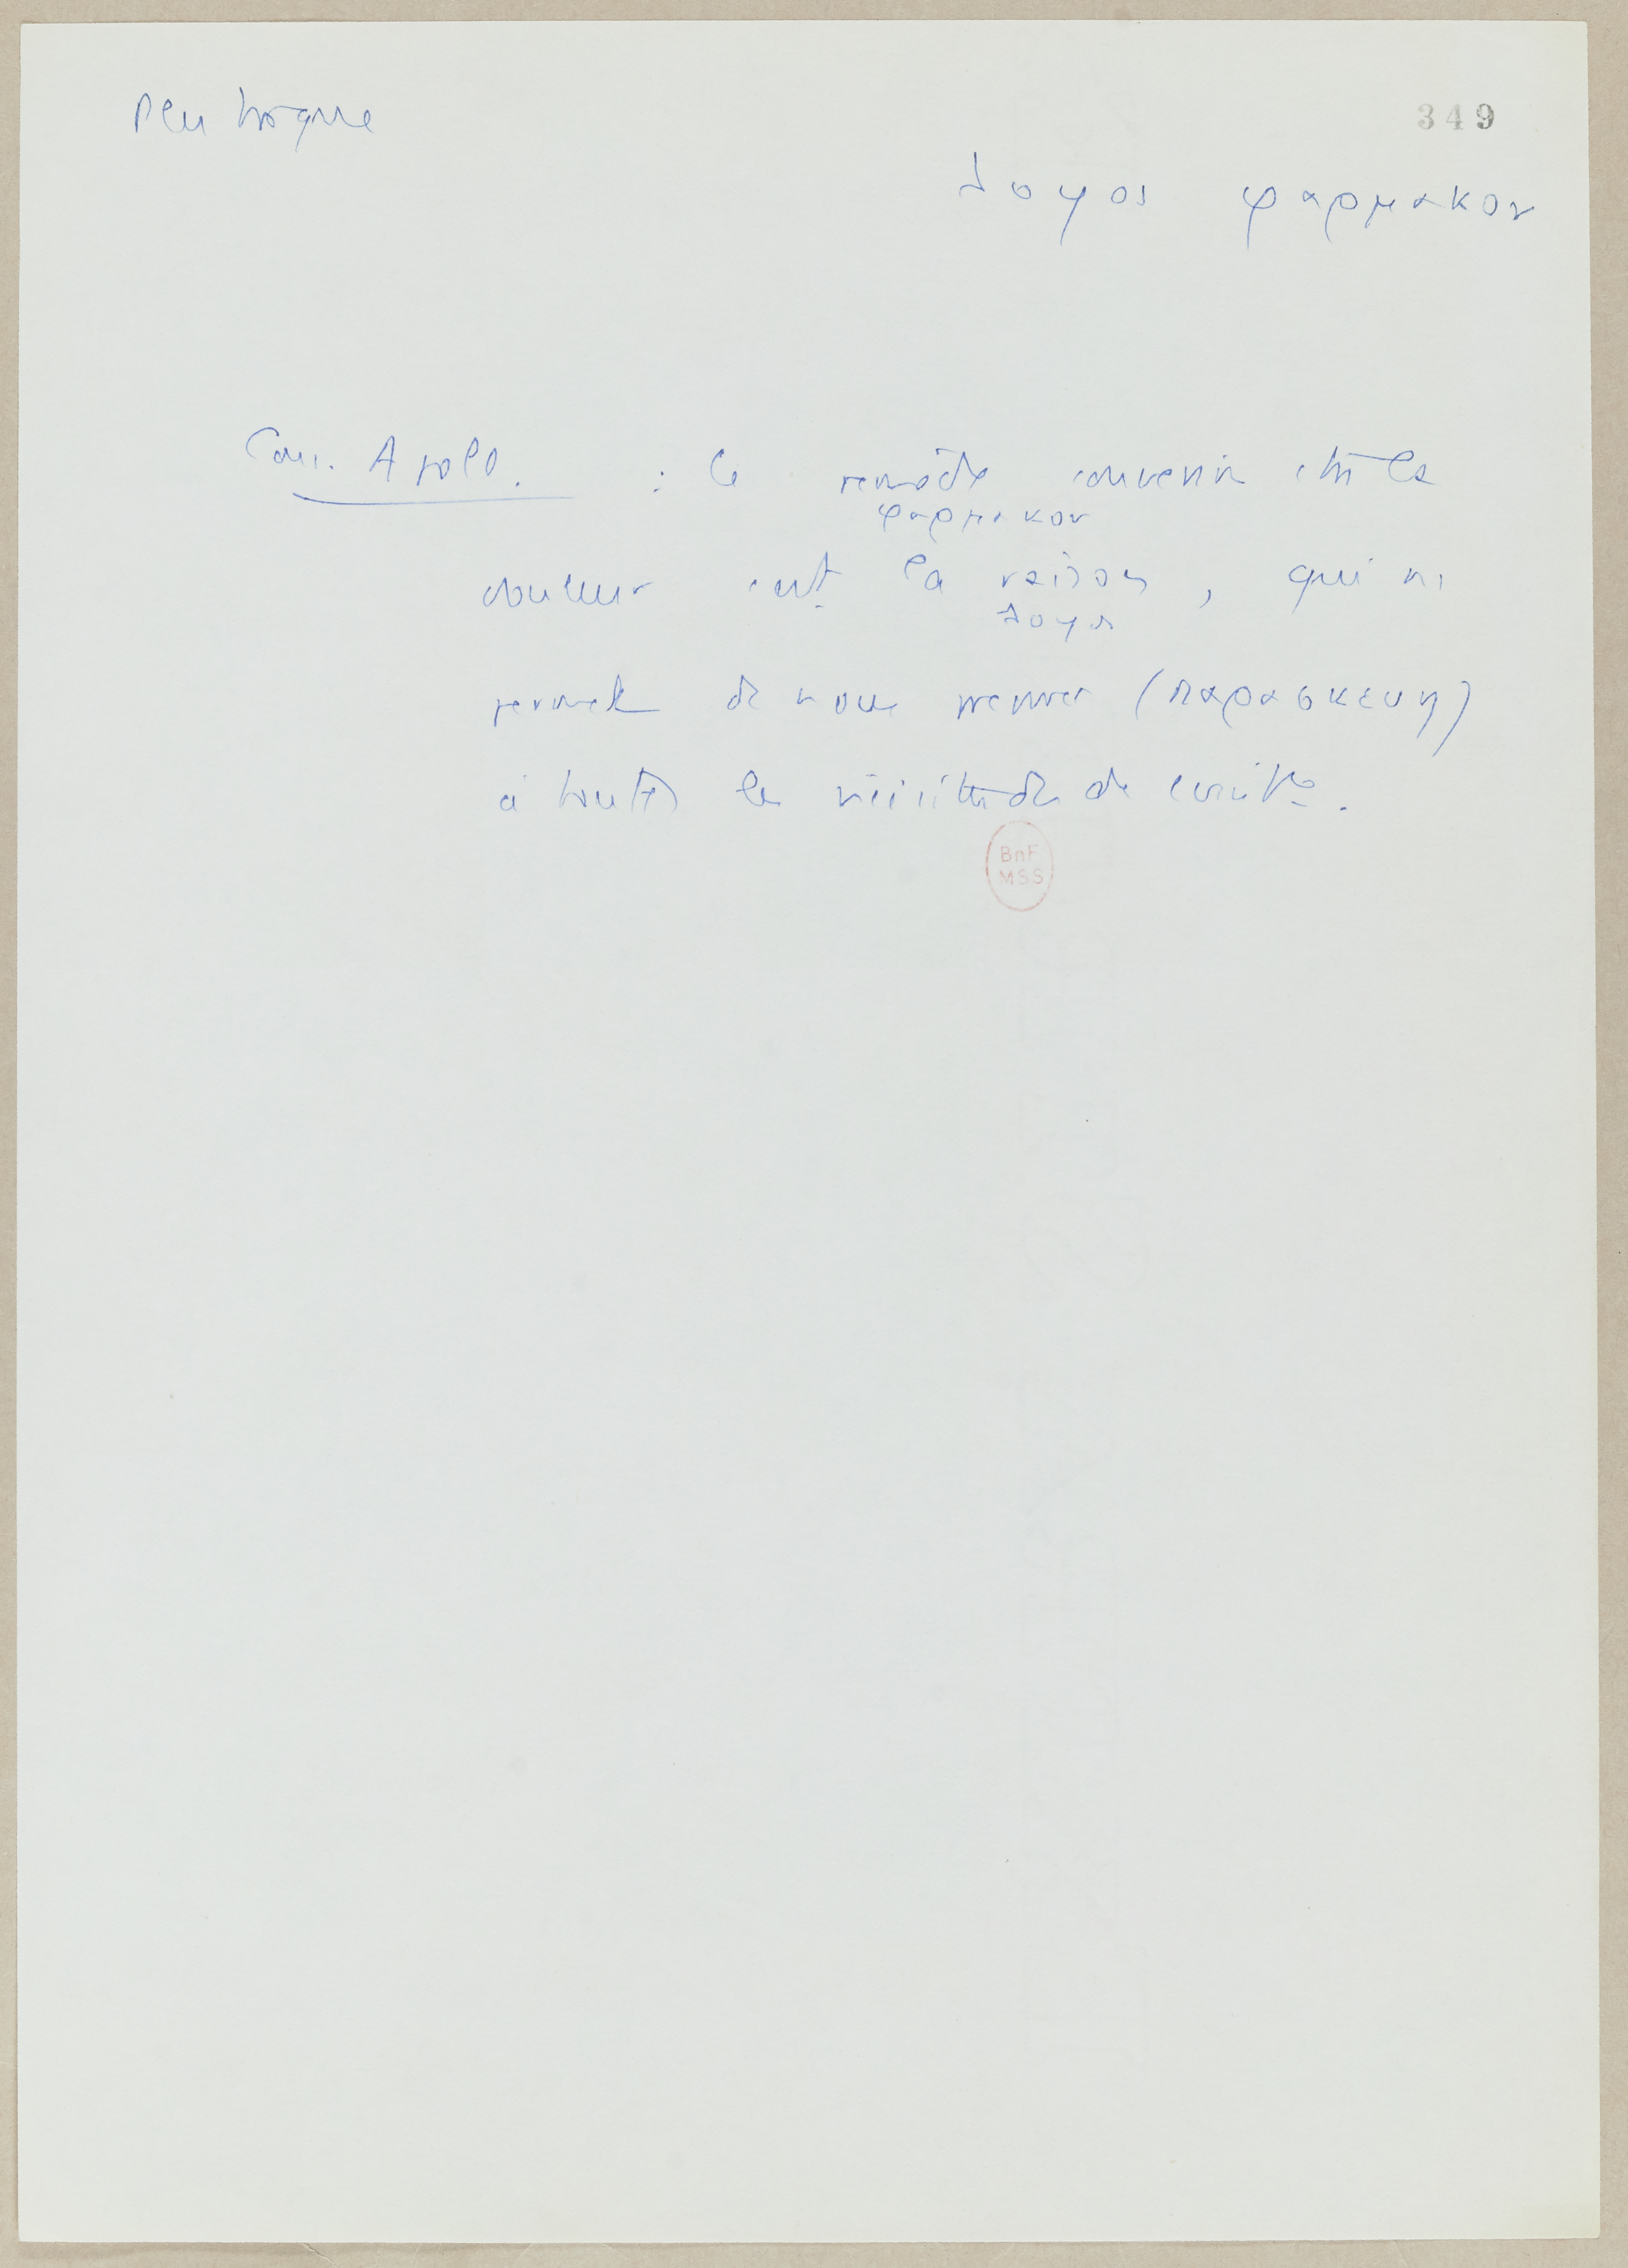 Plutarque
349
λογος φαρμακον
Cons. Apoll. : le remède souverain ctre la
φαρμακον
douleur c'est la raison, qui ns
λογος
permet de nous (παρασκευη)
à toutes les vicissitudes de
BnF
MSS